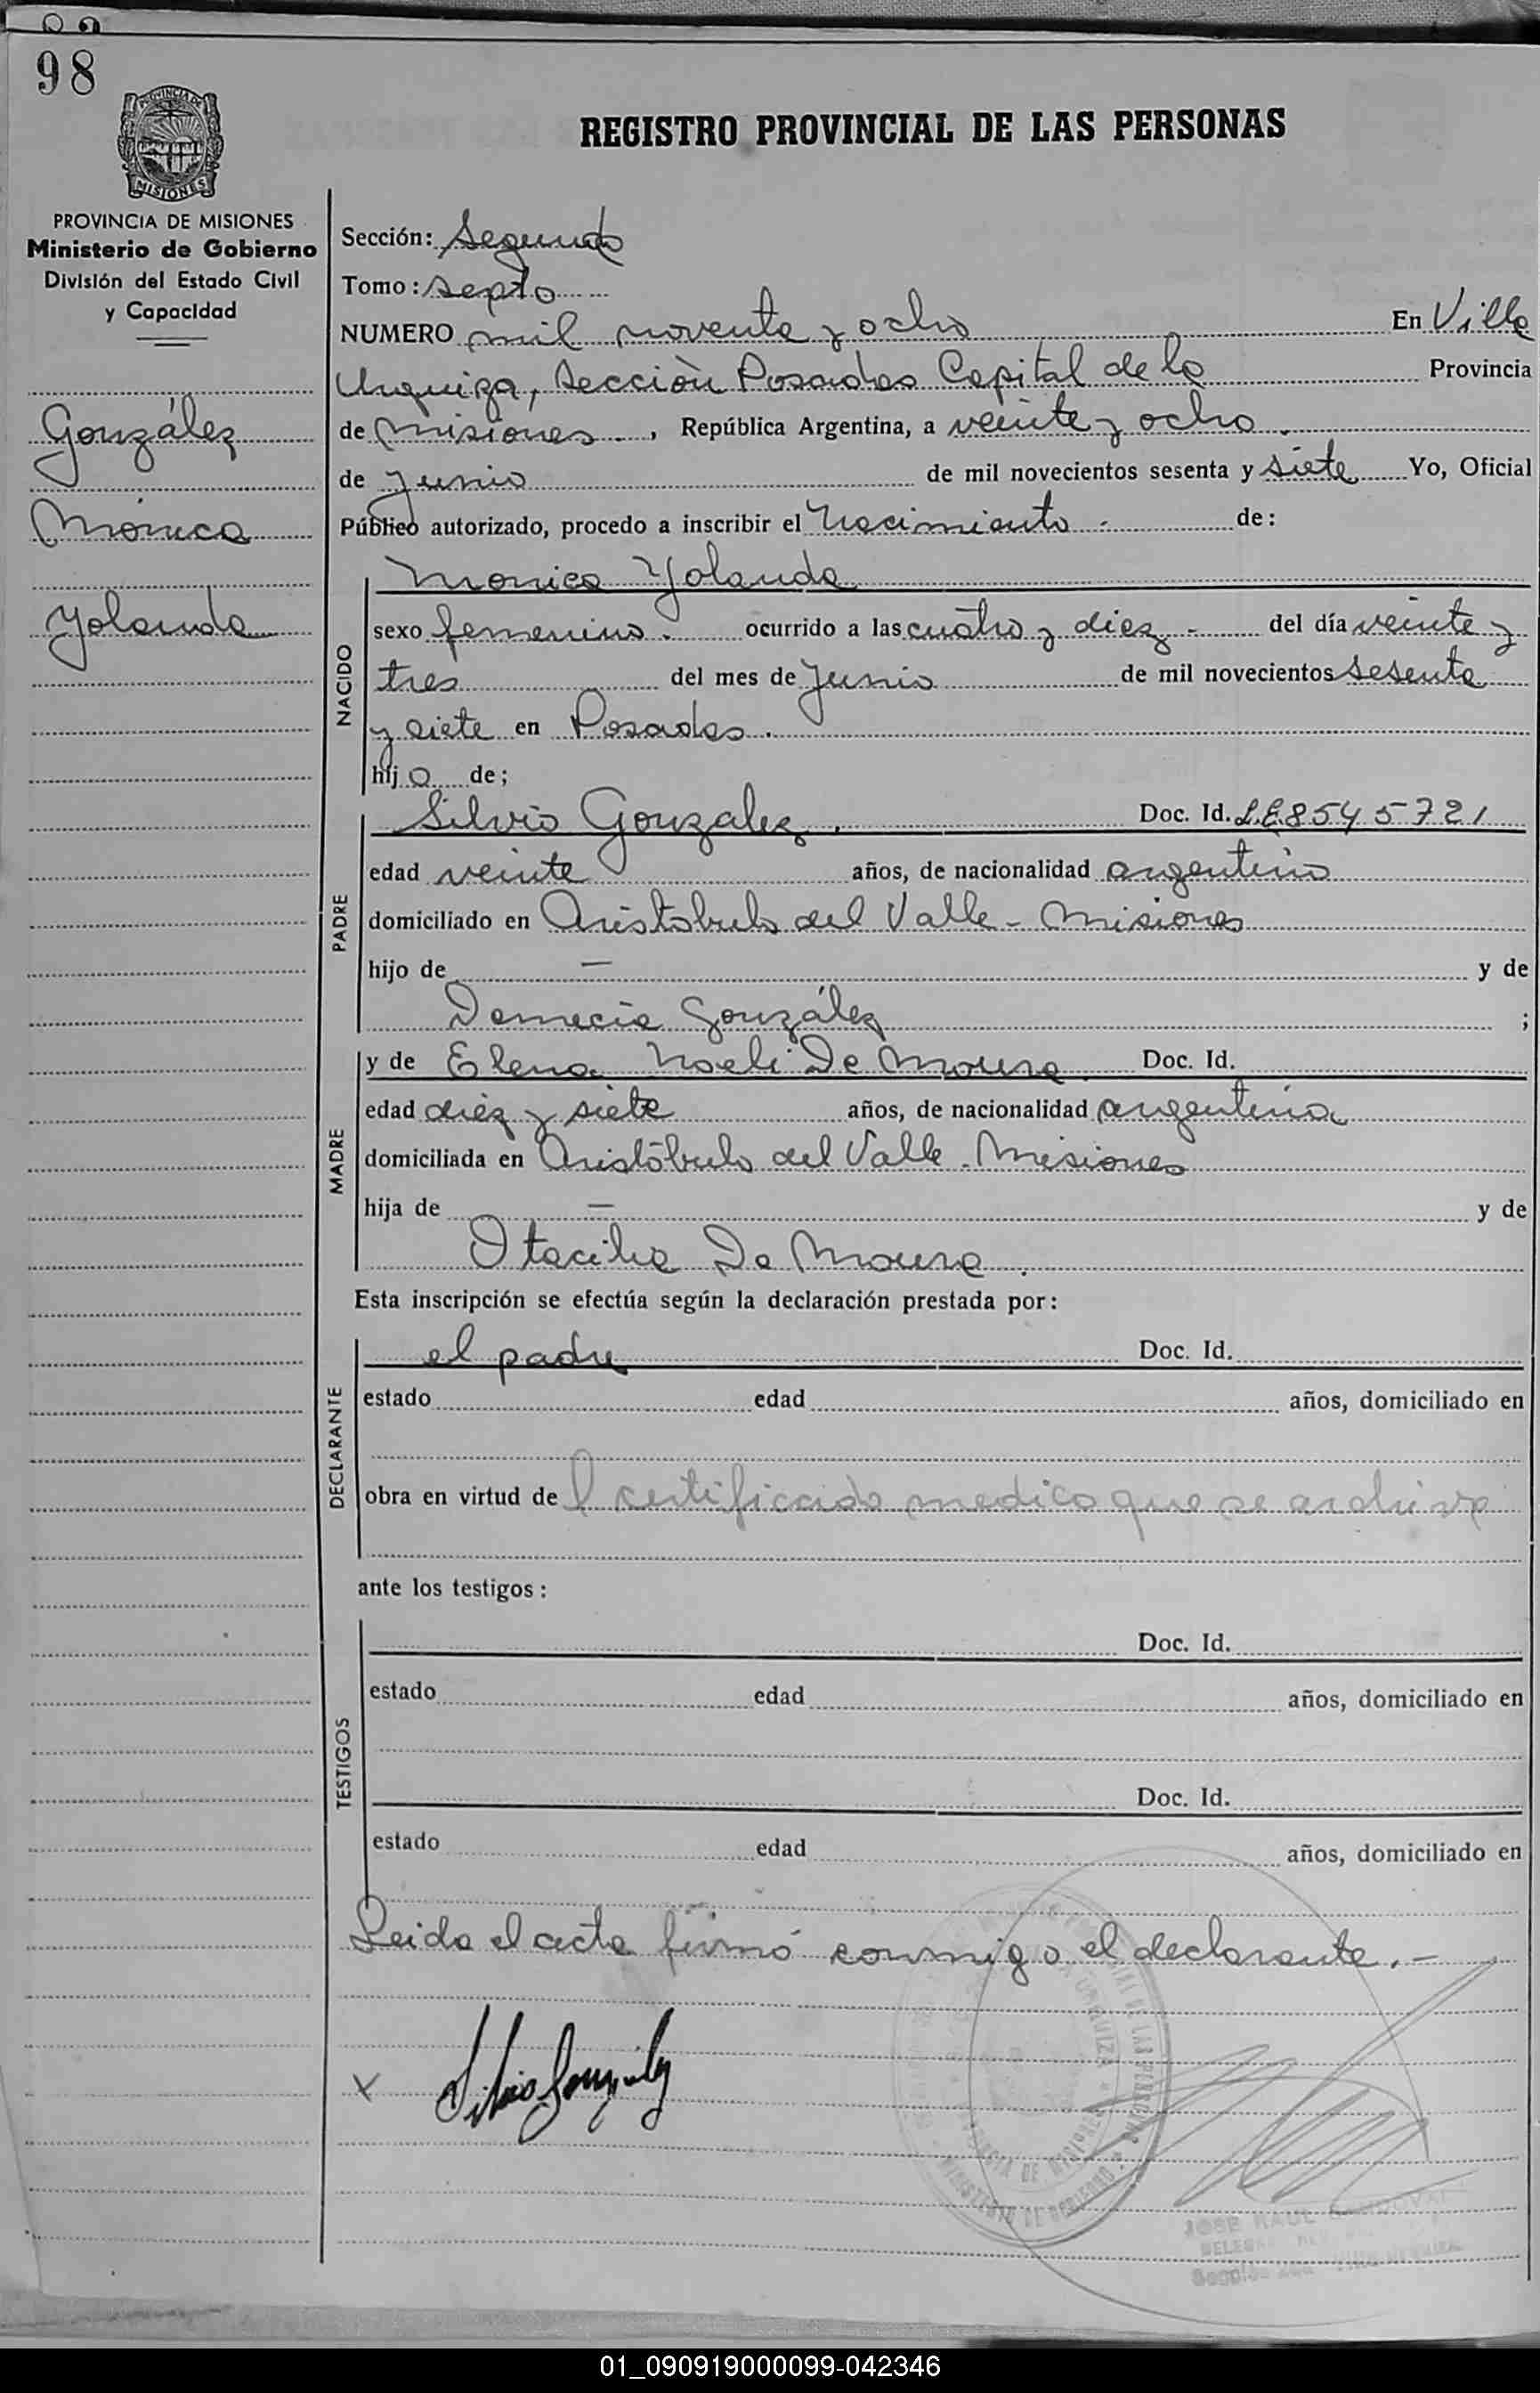 98
PROVINCIA DE
MISIONES
PROVINCIA DE MISIONES
Ministerio de Gobierno
División del Estado Civil
y Capacidad
González
Mónica
Yolanda
REGISTRO PROVINCIAL DE LAS PERSONAS
Sección: Segundo
Tomo: septo
NUMERO mil noventa y ocho En Villa
Urquiza, Sección Posadas Capital de la Provincia
de Misiones., República Argentina, a veinte y ocho.
de Junio de mil novecientos sesenta y siete Yo, Oficial
Público autorizado, procedo a inscribir el Nacimiento - de:
NACIDO
Monica Yolanda
sexo femenino. ocurrido a las cuatro y diez - del día veinte y
tres del mes de Junio de mil novecientos sesenta
y siete en Posadas.
hij a de;
PADRE
Silvio Gonzalez. Doc. Id. L.E.8545721
edad veinte años, de nacionalidad argentino
domiciliado en Aristobulo del Valle - Misiones
hijo de — y de
Demecia González ;
MADRE
y de Elena Noeli De Moura. Doc. Id.
edad diez y siete años, de nacionalidad argentina
domiciliada en Aristóbulo del Valle. Misiones
hija de — y de
Otacilia De Moura.
Esta inscripción se efectúa según la declaración prestada por:
DECLARANTE
el padre Doc. Id.
estado edad años, domiciliado en
obra en virtud de l certificado medico que se archiva
ante los testigos:
TESTIGOS
Doc. Id.
estado edad años, domiciliado en
Doc. Id.
estado edad años, domiciliado en
Leida el acta firmó conmigo el declarante.-
x Silvio Gonzalez
MINISTERIO DE GOBIERNO
JOSE RAUL SANDOVAL
01_090919000099-042346